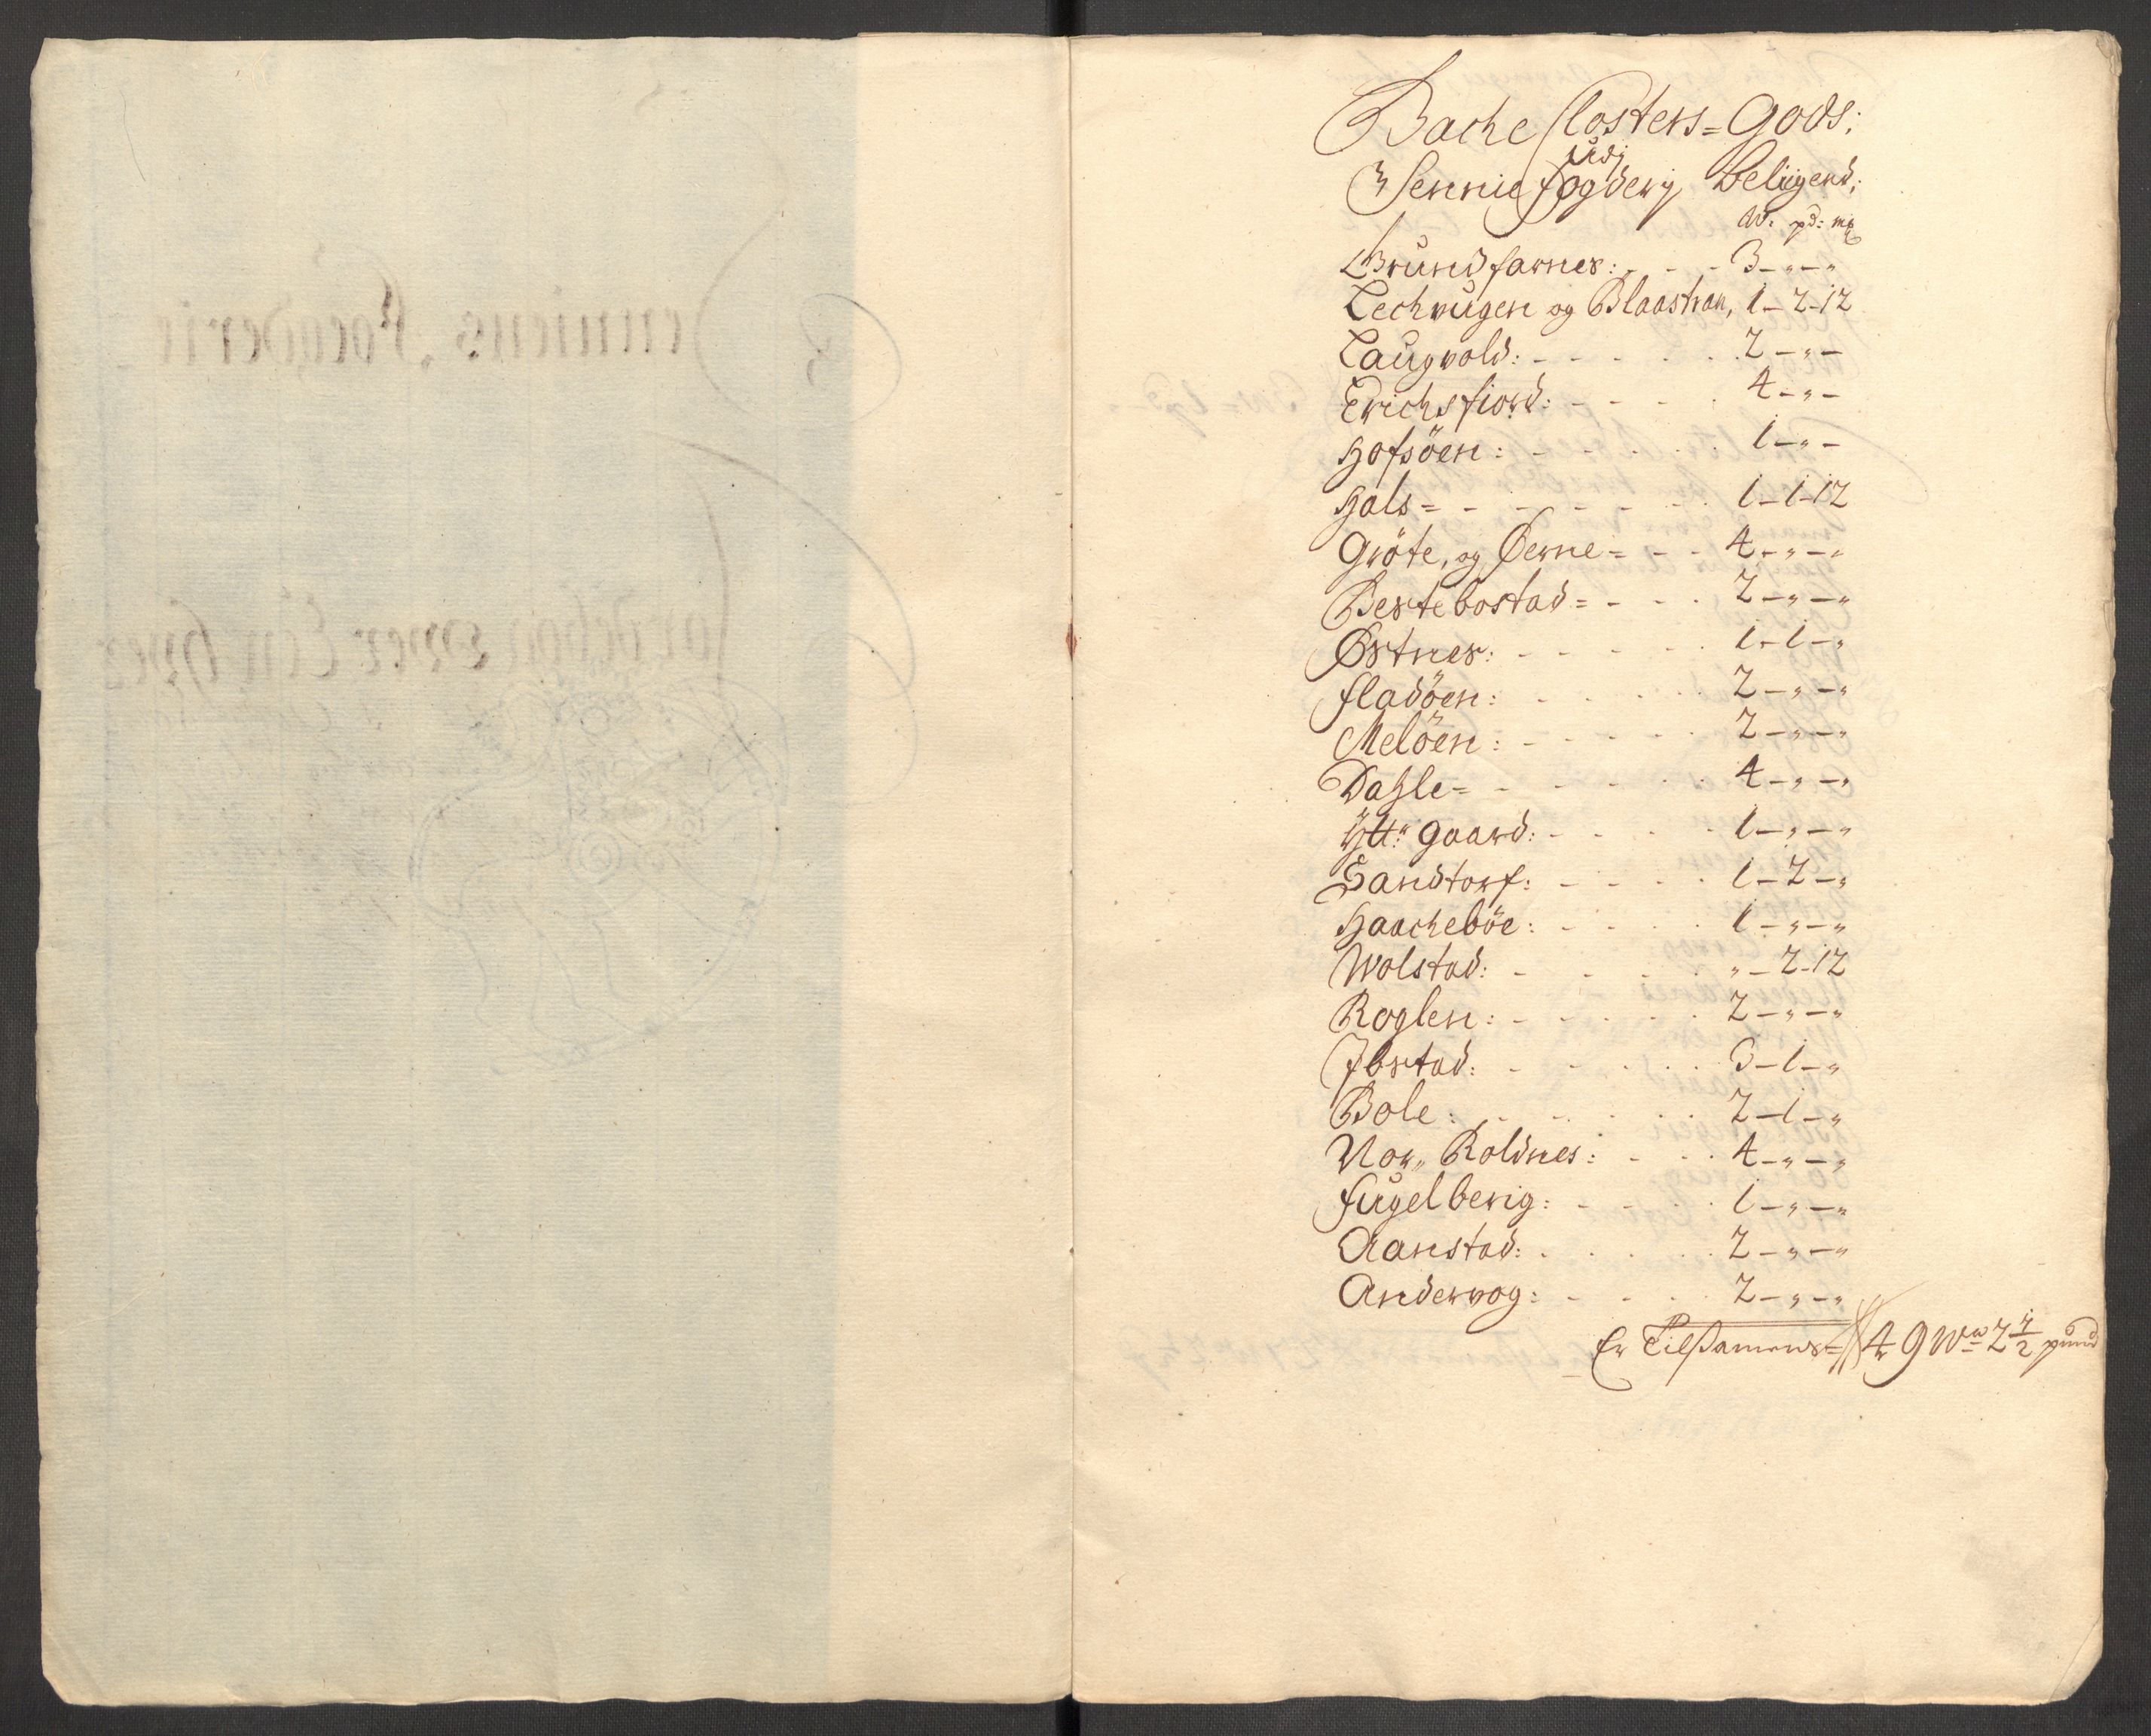 Bache Closters=Gods;
udj
Sennie fogderj Beligend;
W: pd: mk
Brundfarnes: - - - 3 - „ - „
Lechvugen og Blaastran, 1 - 2 - 12
Laugvold: - - - - - 2 - „ -
Erichsfiord: - - - - 4 - „ -
Hofsöen: - - - - - 1 - „ -
Hals = - - - - - - 1 - 1 - 12
Gröte, og Øerne = - - 4 - „ - „
Bestebostad = - - - 2 - „ - „
Østnes: - - - - - 1 - 1 - „
fladöen: - - - - 2 - „ - „
Melöen: - - - - - 2 - „ - „
Dahle = - - - - - 4 - „ - „
Ytt: gaard: - - - - 1 - „ - „
Sandtorf: - - - - 1 - 2 - „
Haacheböe: - - - - 1 - „ - „
Wolstad: - - - - - „ - 2 - 12
Roglen: - - - - - 2 - „ - „
Ibstad: - - - - - 3 - 1 - „
Bole: - - - - - 2 - 1 - „
Nor„ Roldnes: - - - 4 - „ - „
fugelberig: - - - - 1 - „ - „
Aanstad: - - - - - 2 - „ - „
Andervog: - - - - 2 - „ - „
Er Tilsamens = 49 W 2 1/2 pund